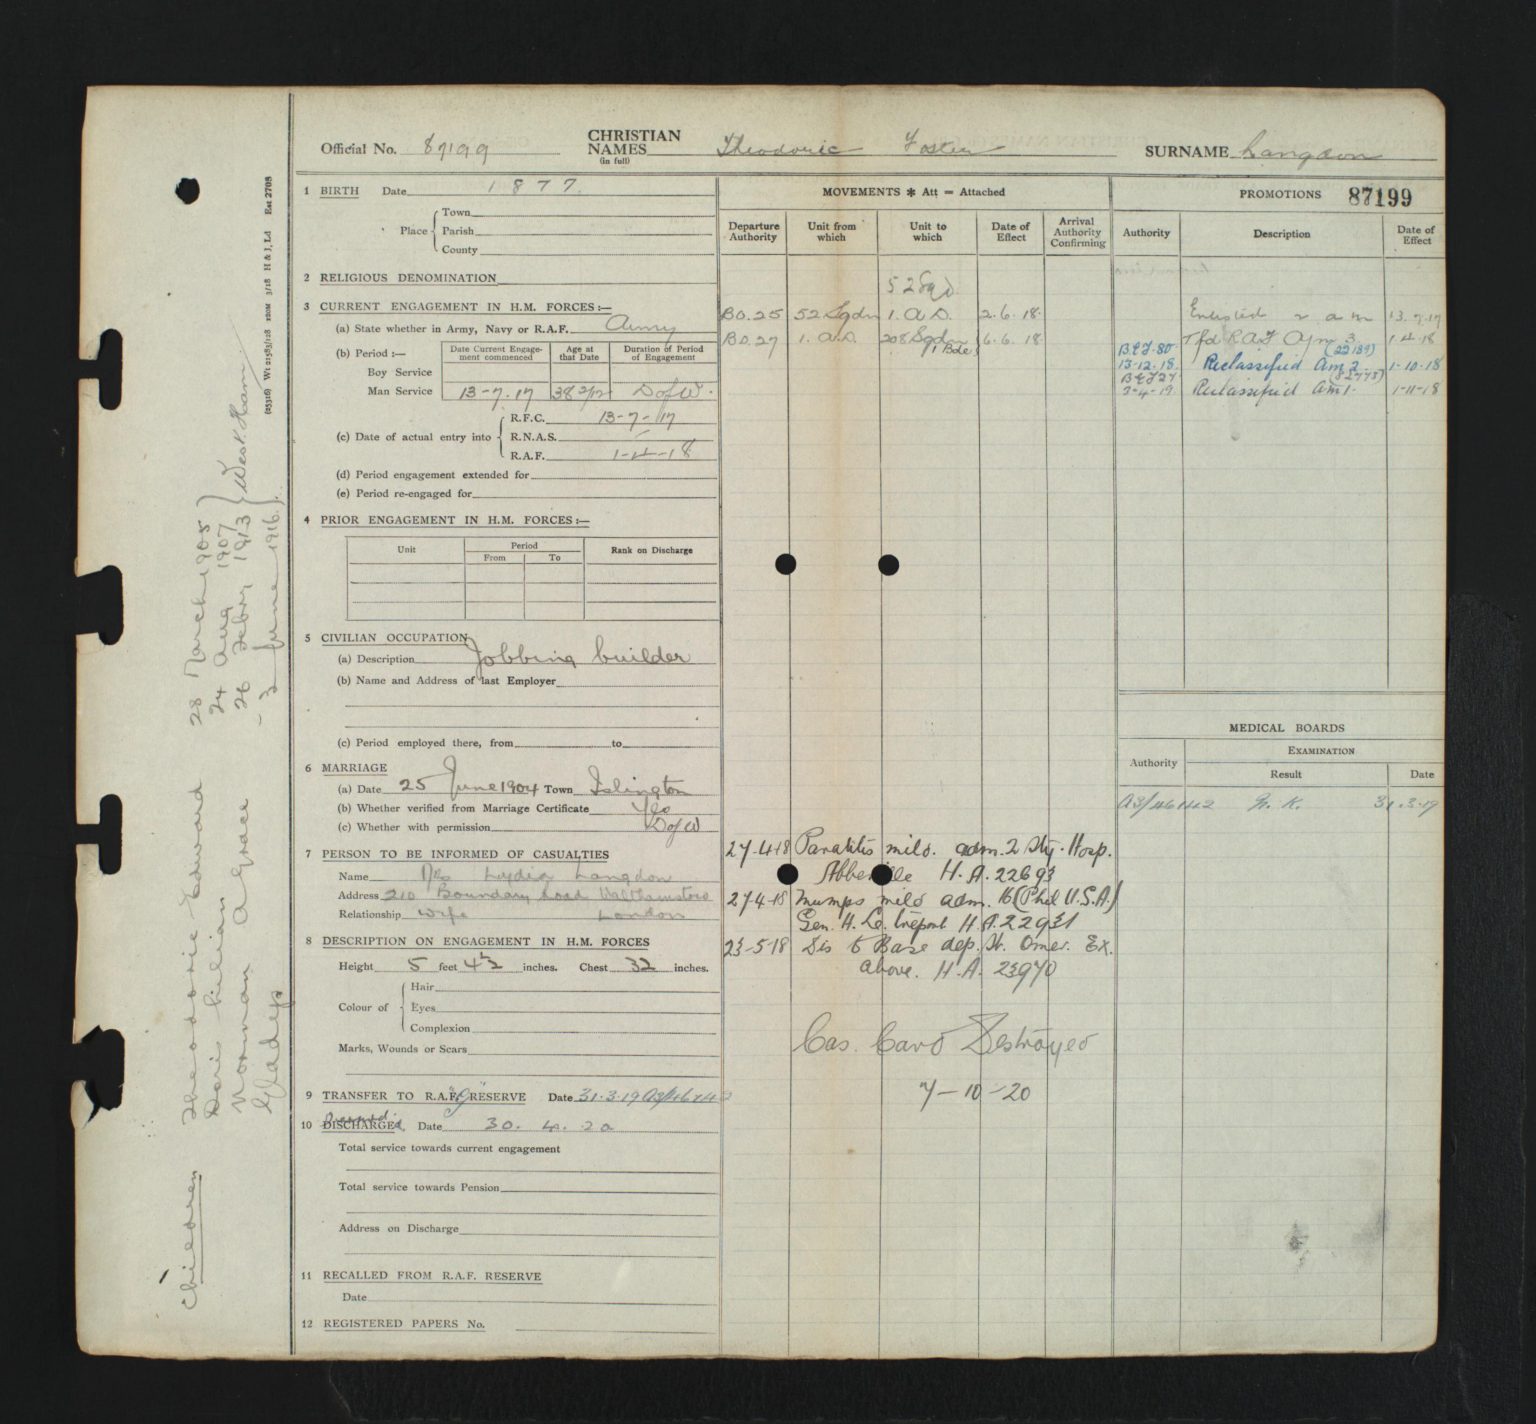 Official No. 87199 CHRISTIAN NAMES (in full) Theodoric Foster SURNAME Langdon
1 BIRTH Date 1877.
Place Town
Parish
County
2 RELIGIOUS DENOMINATION
3 CURRENT ENGAGEMENT IN H.M. FORCES:—
(a) State whether in Army, Navy or R.A.F. Army
(b) Period:— Date Current Engagement commenced Age at that Date Duration of Period of Engagement
Boy Service
Man Service 13-7.17 38 2/12 D of W.
(c) Date of actual entry into R.F.C. 13-7-17
R.N.A.S. —
R.A.F. 1-4-18
(d) Period engagement extended for
(e) Period re-engaged for
4 PRIOR ENGAGEMENT IN H.M. FORCES:—
Unit Period Rank on Discharge
From To
5 CIVILIAN OCCUPATION
(a) Description Jobbing builder
(b) Name and Address of last Employer
(c) Period employed there, from to
6 MARRIAGE
(a) Date 25 June 1904 Town Islington
(b) Whether verified from Marriage Certificate Yes
(c) Whether with permission D of W
7 PERSON TO BE INFORMED OF CASUALTIES
Name Mrs Lydia Langdon
Address 210 Boundary Road Walthamstow
Relationship Wife London
8 DESCRIPTION ON ENGAGEMENT IN H.M. FORCES
Height 5 feet 4½ inches. Chest 32 inches.
Colour of Hair
Eyes
Complexion
Marks, Wounds or Scars
9 TRANSFER TO R.A.F. "G" RESERVE Date 31.3.19
10 DISCHARGED. Date 30. 4. 20
Total service towards current engagement
Total service towards Pension
Address on Discharge
11 RECALLED FROM R.A.F. RESERVE
Date
12 REGISTERED PAPERS No.
MOVEMENTS * Att = Attached
Departure Authority Unit from which Unit to which Date of Effect Arrival Authority Confirming
52 Sqd
BO.25 52 Sqdn 1. A.D. 2.6.18.
BO.27 1. A.D. 208 Sqdn 6.6.18
27-4-18 Parotitis mild. adm. 2 Sty. Hosp.
Abbeville H.A. 22693
27-4-18 Mumps mild adm. 16 (Phil U.S.A.)
Gen. H. Le Treport H.A. 22931
23-5-18 Dis to Base dep. St. Omer. Ex.
above. H.A. 23970
Cas. Card Destroyed
7-10-20
PROMOTIONS 87199
Authority Description Date of Effect
Enlisted 2 a m 13.7.17
Tfd RAF Ajm 3 1.4.18
B.E.F. 80 (22189)
13-12-18 Reclassified Am 2. 1-10-18
B.E.F 27
3-4-19 Reclassified am 1. 1-11-18
MEDICAL BOARDS
EXAMINATION
Authority Result Date
31.3.19
Children
Theodoric Edward 28 March 1905
Doris Lilian 24 Aug 1907
Norman A Grace 26 Febry 1913
Gladys 3 June 1916.
West Ham
(25316) Wt 21583/128 120M 3/18 H & J, Ld Est 2708